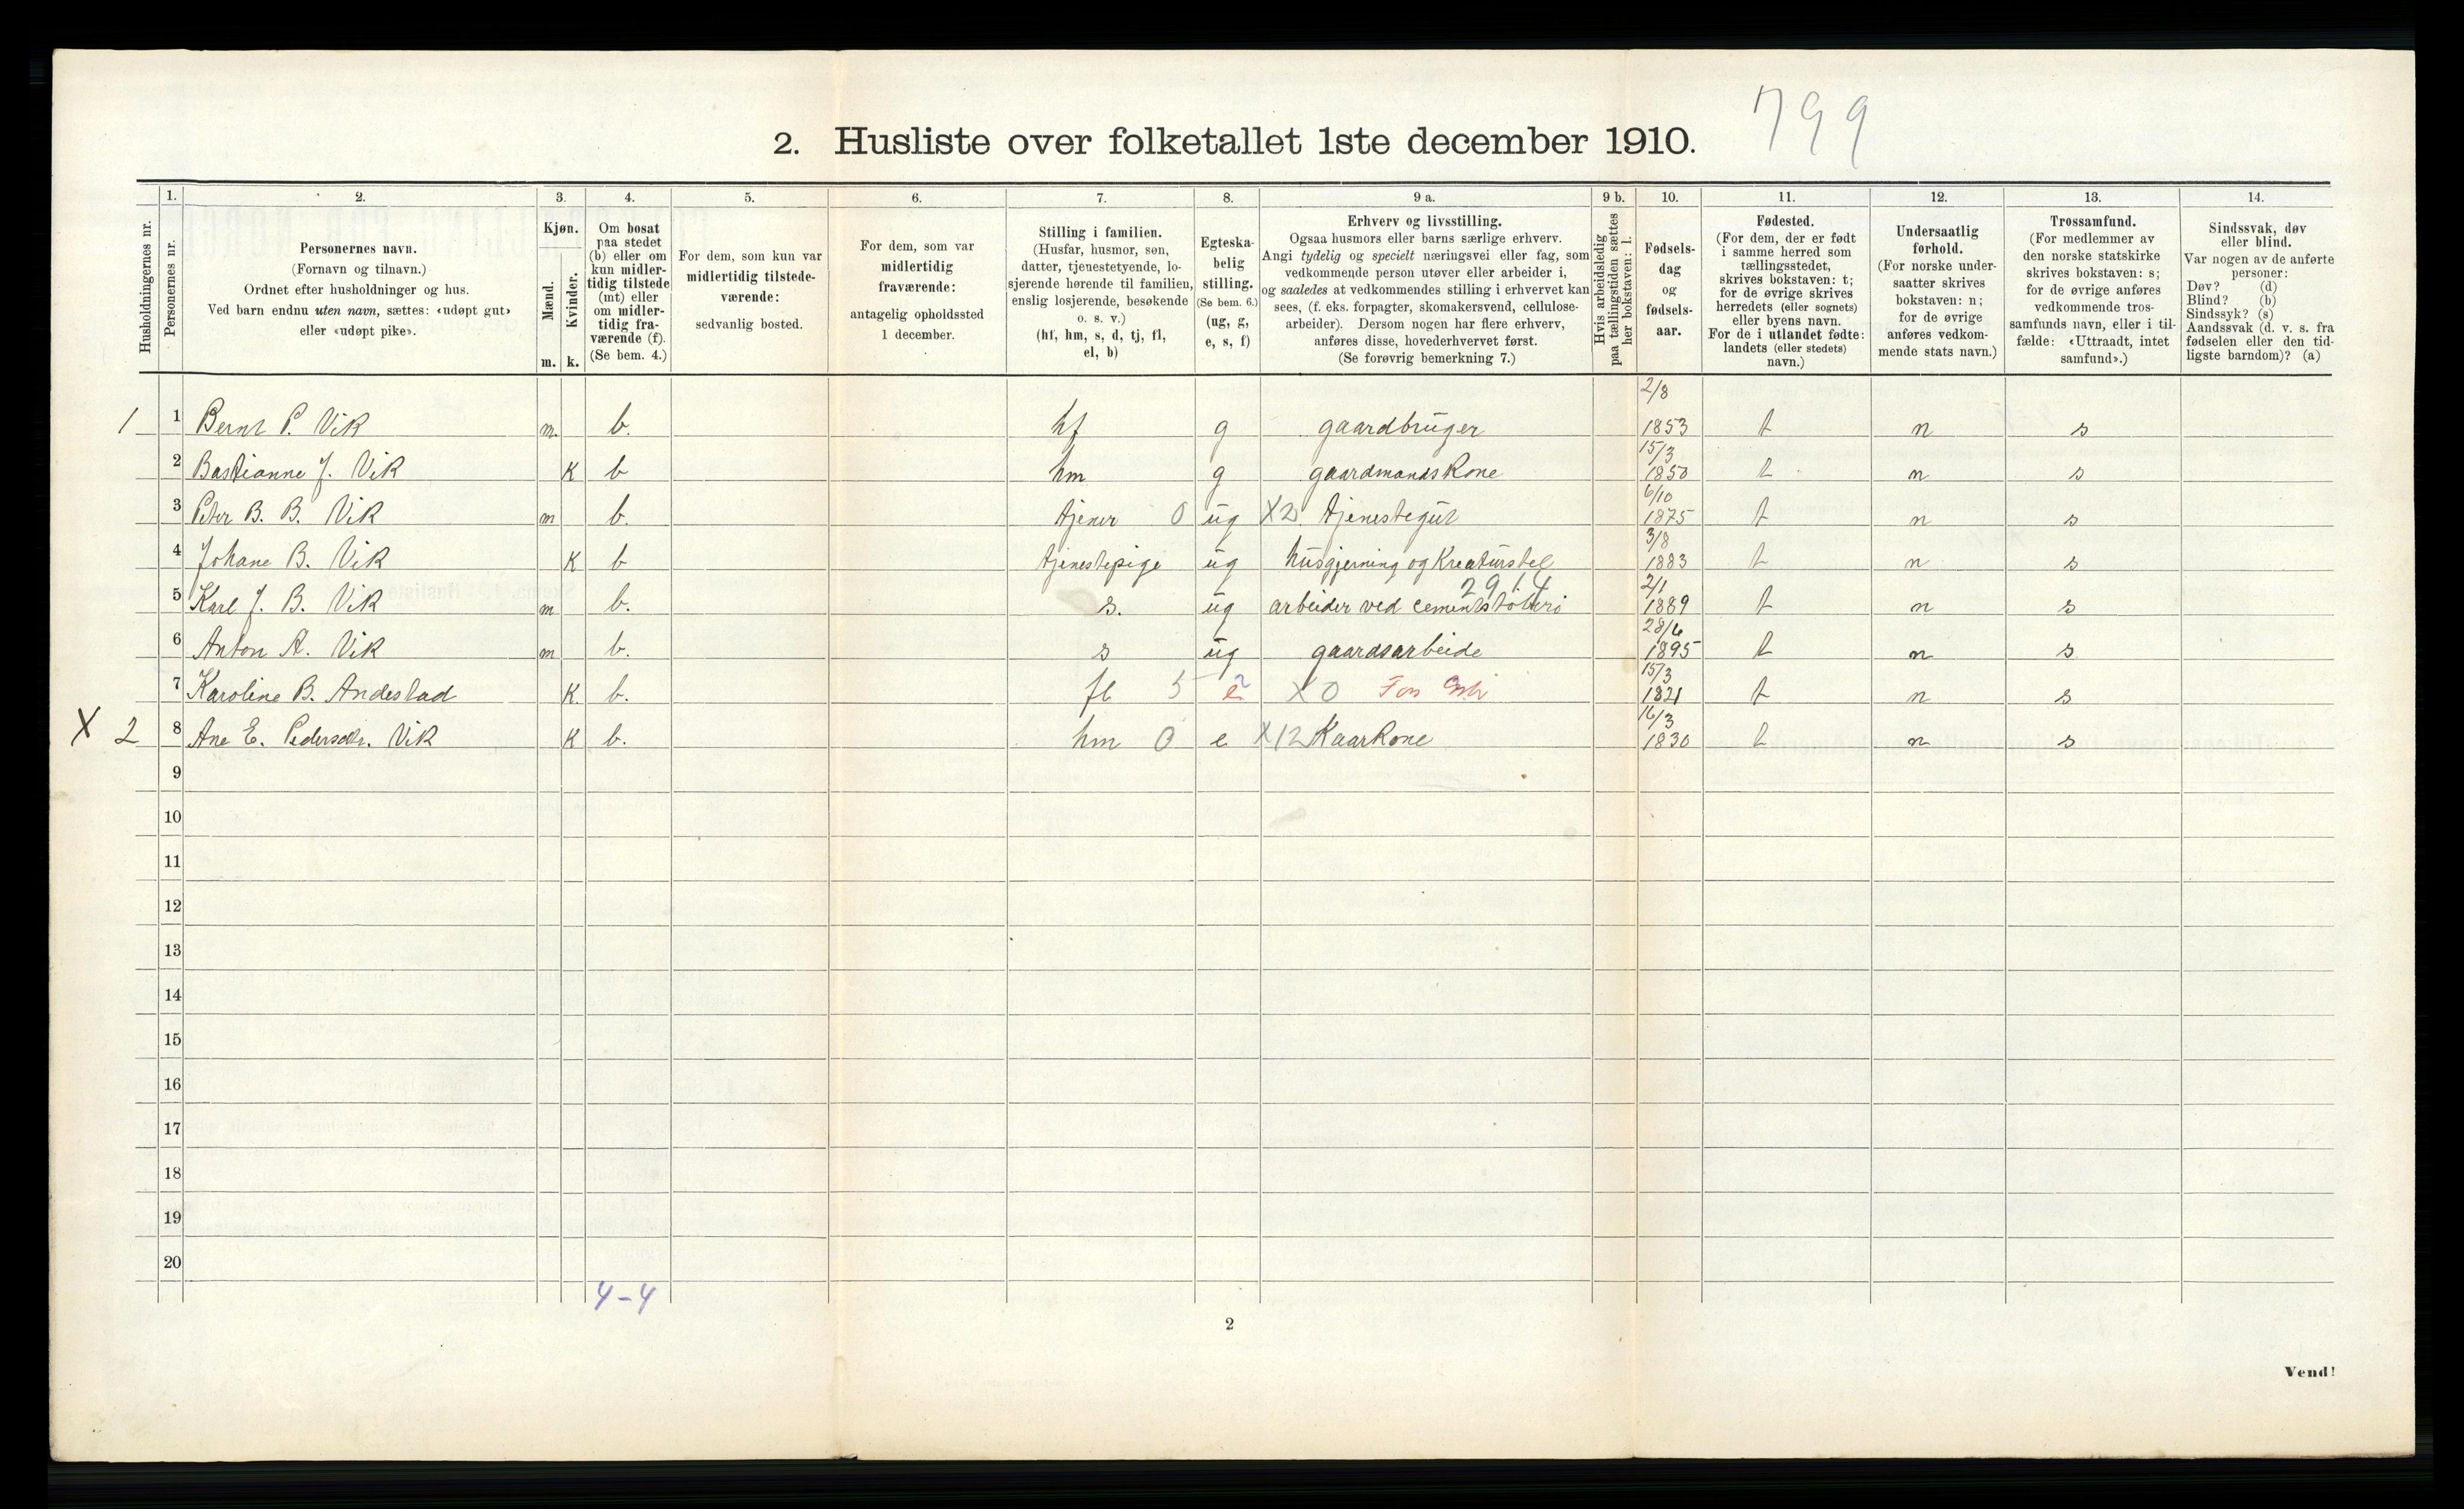 799
2. Husliste over folketallet 1ste december 1910.
Husholdningernes nr.
1.
Personernes nr.
2.
Personernes navn.
(Fornavn og tilnavn.)
Ordnet efter husholdninger og hus.
Ved barn endnu uten navn, sættes: «udøpt gut»
eller «udøpt pike».
3.
Kjøn.
Mænd.
Kvinder.
m. k.
4.
Om bosat
paa stedet
(b) eller om
kun midler-
tidig tilstede
(mt) eller
om midler-
tidig fra-
værende (f).
(Se bem. 4.)
5.
For dem, som kun var
midlertidig tilstede-
værende:
sedvanlig bosted.
6.
For dem, som var
midlertidig
fraværende:
antagelig opholdssted
1 december.
7.
Stilling i familien.
(Husfar, husmor, søn,
datter, tjenestetyende, lo-
sjerende hørende til familien,
enslig losjerende, besøkende
o. s. v.)
(hf, hm, s, d, tj, fl,
el, b)
8.
Egteska-
belig
stilling.
(Se bem. 6.)
(ug, g,
e, s, f)
9 a.
Erhverv og livsstilling.
Ogsaa husmors eller barns særlige erhverv.
Angi tydelig og specielt næringsvei eller fag, som
vedkommende person utøver eller arbeider i,
og saaledes at vedkommendes stilling i erhvervet kan
sees, (f. eks. forpagter, skomakersvend, cellulose-
arbeider). Dersom nogen har flere erhverv,
anføres disse, hovederhvervet først.
(Se forøvrig bemerkning 7.)
9 b.
Hvis arbeidsledig
paa tællingstiden sættes
her bokstaven: l.
10.
Fødsels-
dag
og
fødsels-
aar.
11.
Fødested.
(For dem, der er født
i samme herred som
tællingsstedet,
skrives bokstaven: t;
for de øvrige skrives
herredets (eller sognets)
eller byens navn.
For de i utlandet fødte:
landets (eller stedets)
navn.)
12.
Undersaatlig
forhold.
(For norske under-
saatter skrives
bokstaven: n;
for de øvrige
anføres vedkom-
mende stats navn.)
13.
Trossamfund.
(For medlemmer av
den norske statskirke
skrives bokstaven: s;
for de øvrige anføres
vedkommende tros-
samfunds navn, eller i til-
fælde: «Uttraadt, intet
samfund».)
14.
Sindssvak, døv
eller blind.
Var nogen av de anførte
personer:
Døv? (d)
Blind? (b)
Sindssyk? (s)
Aandssvak (d. v. s. fra
fødselen eller den tid-
ligste barndom)? (a)
1 1 Bernt P. Vik m. b. hf g gaardbruger 2/8 1853 t n s
2 Bastianne J. Vik K b hm g gaardmandskone 15/3 1850 t n s
3 Peter B. B. Vik m b. tjener 0 ug X2 tjenestegut 6/10 1875 t n s
4 Johane B. Vik K b tjenestepige ug husgjerning og Kreaturstel 3/8 1883 t n s
2914
5 Karl J. B. Vik m b. s. ug arbeider ved cementstøberi 2/1 1889 t n s
6 Anton A. Vik m b. s ug gaardsarbeide 28/6 1895 t n s
7 Karoline B. Andestad K. b. fl 5 e 2 X0 15/3 1821 t n s
X 2 8 Ane E. Pedersdtr. Vik K b. hm 0 e X12 Kaarkone 16/3 1830 t n s
9
10
11
12
13
14
15
16
17
18
19
20
4-4
2
Vend!